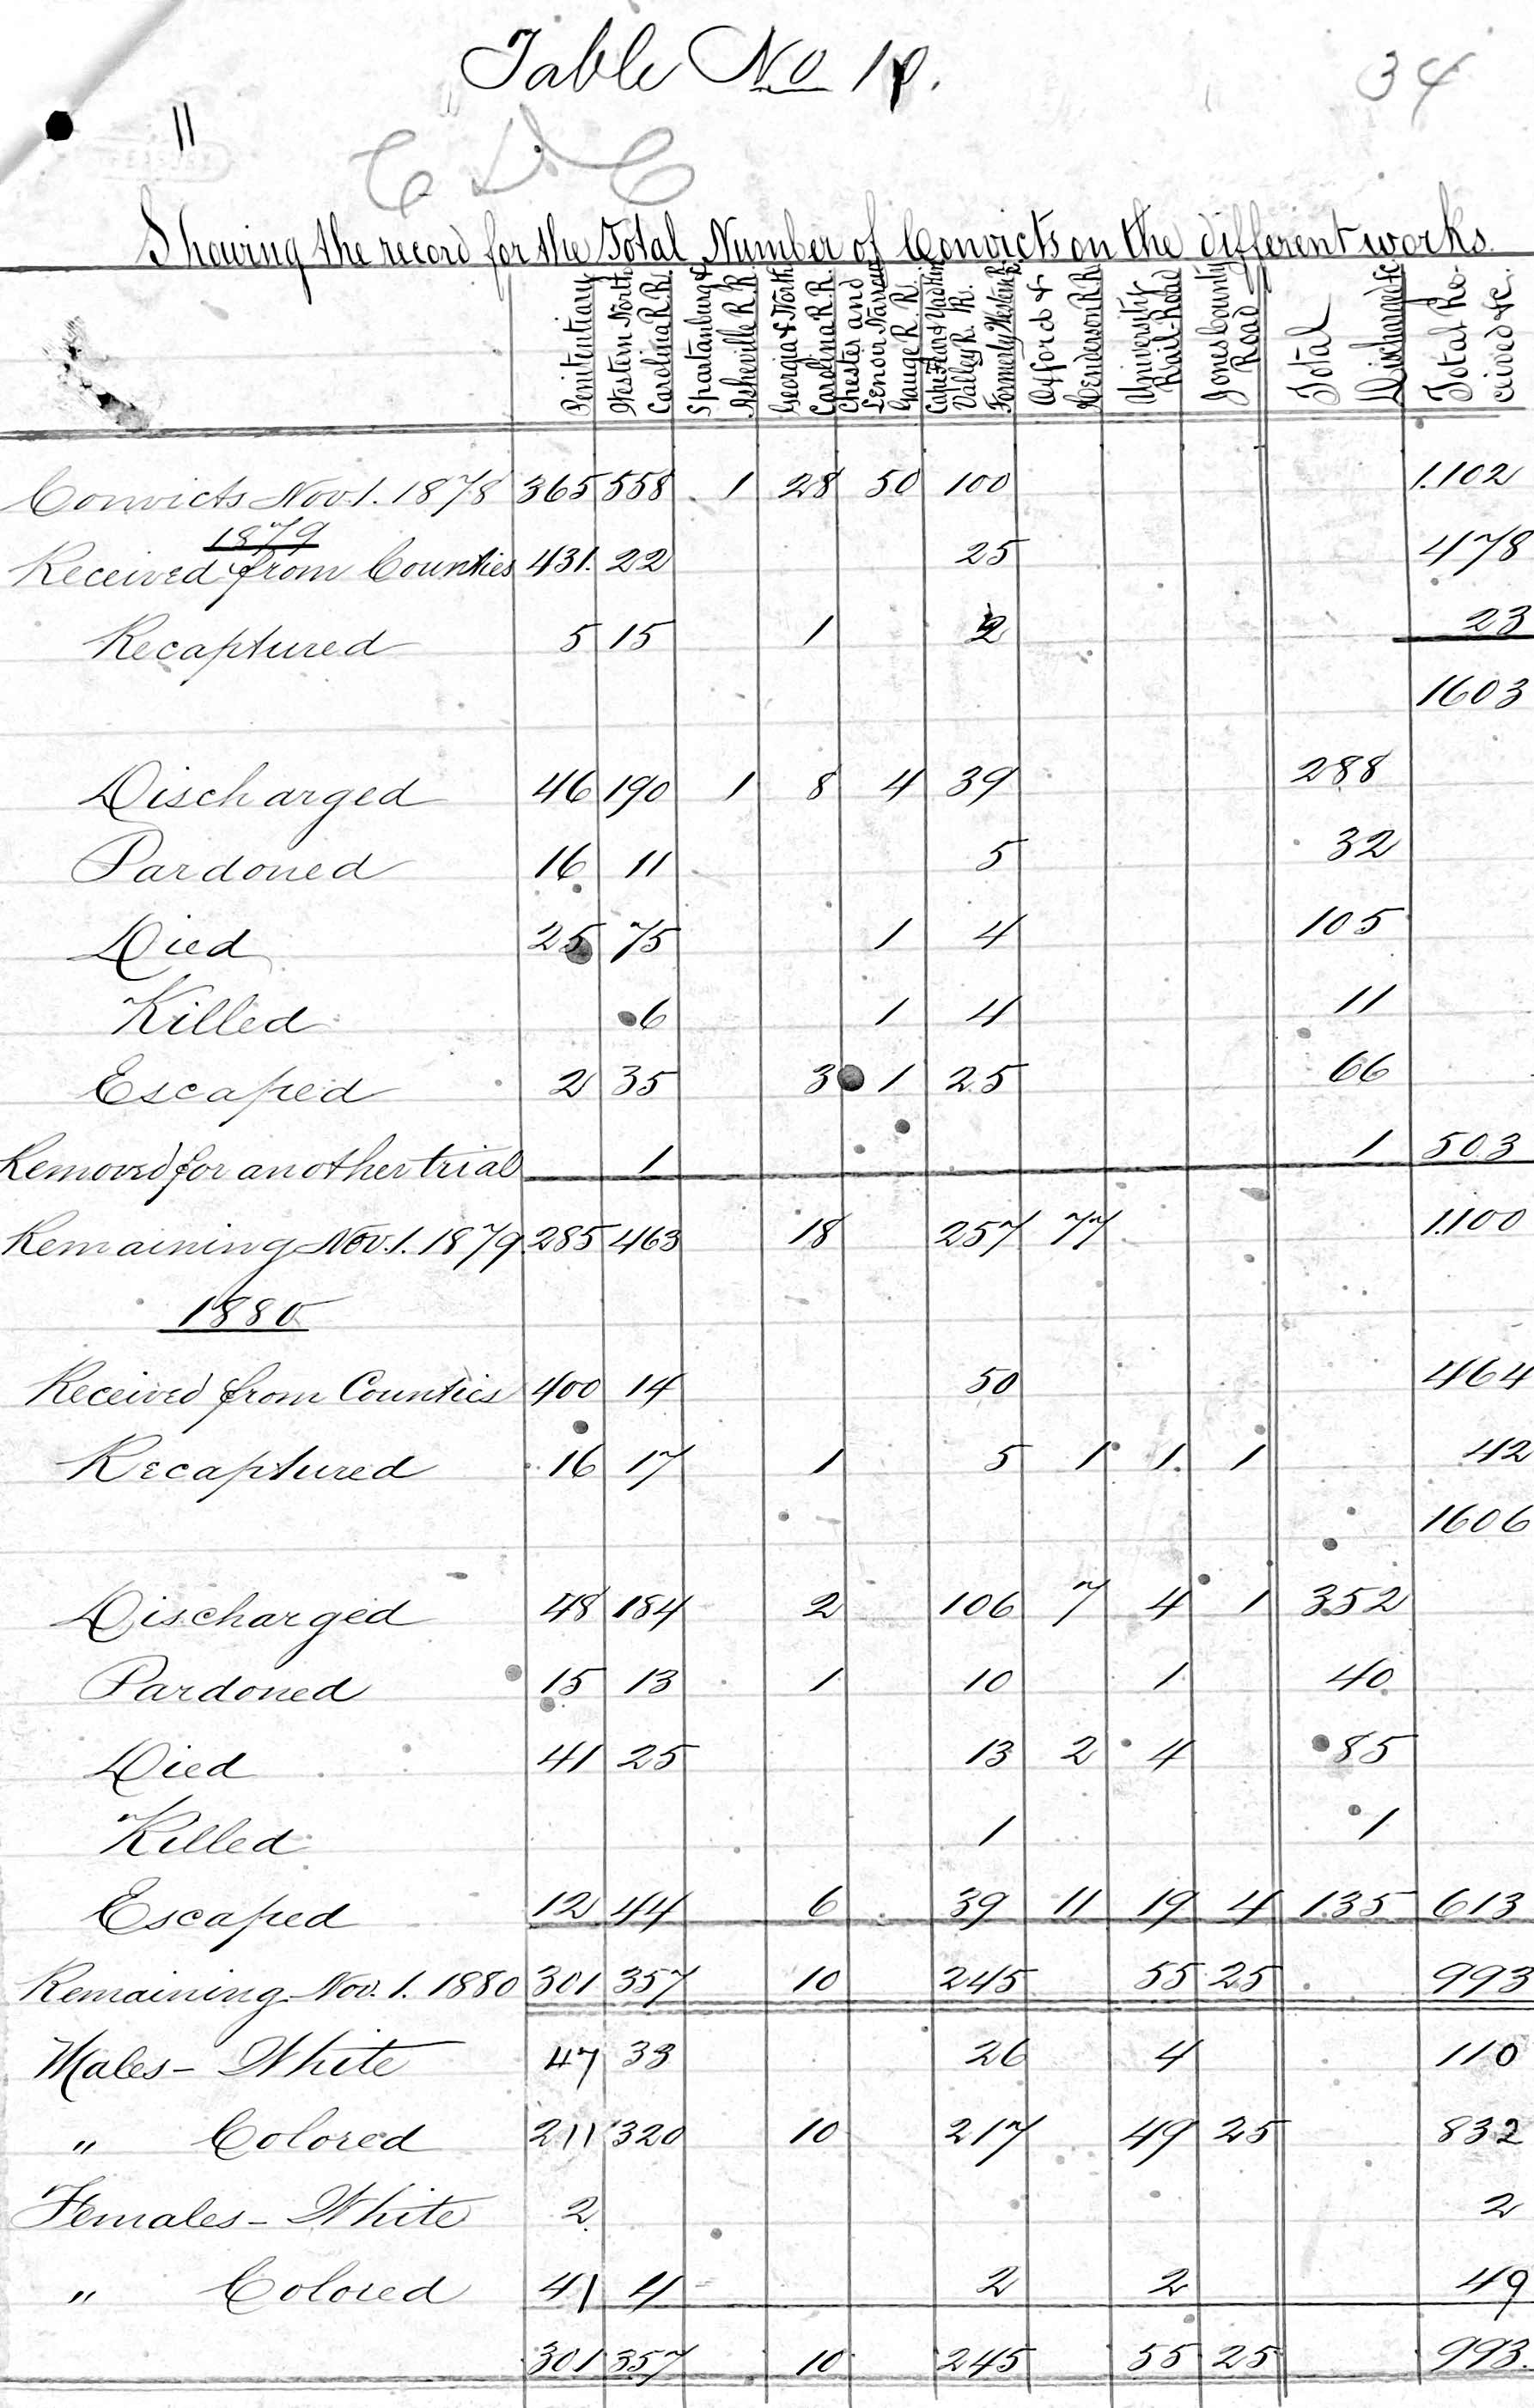 Table No 10.
34
11
C D C
Showing the record for the Total Number of Convicts on the different works.
Penitentiary
Western North Carolina R.R.
Spartanburg & Asheville R.R.
Georgia & North Carolina R.R.
Chester and Lenoir Narrow Gauge R. R.
Cape Fear & Yadkin Valley R. R. Formerly Western R.R.
Oxford & Henderson R.R.
University Rail-Road
Jones County Road
Total Discharged &c
Total Received &c.
Convicts Nov. 1. 1878 365 558 1 28 50 100 1.102
1879
Received from Counties 431. 22 25 478
Recaptured 5 15 1 2 23
1603
Discharged 46 190 1 8 4 39 288
Pardoned 16 11 5 32
Died 25 75 1 4 105
Killed 6 1 4 11
Escaped 2 35 3 1 25 66
Removed for another trial 1 1 503
Remaining Nov. 1. 1879. 285 463 18 257 77 1.100
1880
Received from Counties 400 14 50 464
Recaptured 16 17 1 5 1 1. 1 42
1606
Discharged 48 184 2 106 7 4 1 352
Pardoned 15 13 1 10 1 40
Died 41 25 13 2 4 85
Killed 1 1
Escaped 12 44 6 39 11 19 4 135 613
Remaining Nov. 1. 1880 301 357 10 245 55 25 993
Males - White 47 33 26 4 110
" Colored 211 320 10 217 49 25 832
Females - White 2 2
" Colored 41 4 2 2 49
301 357 10 245 55 25 993.